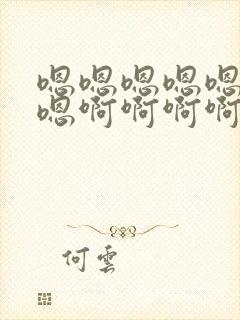 嗯嗯嗯嗯嗯
嗯啊啊啊啊
何雲